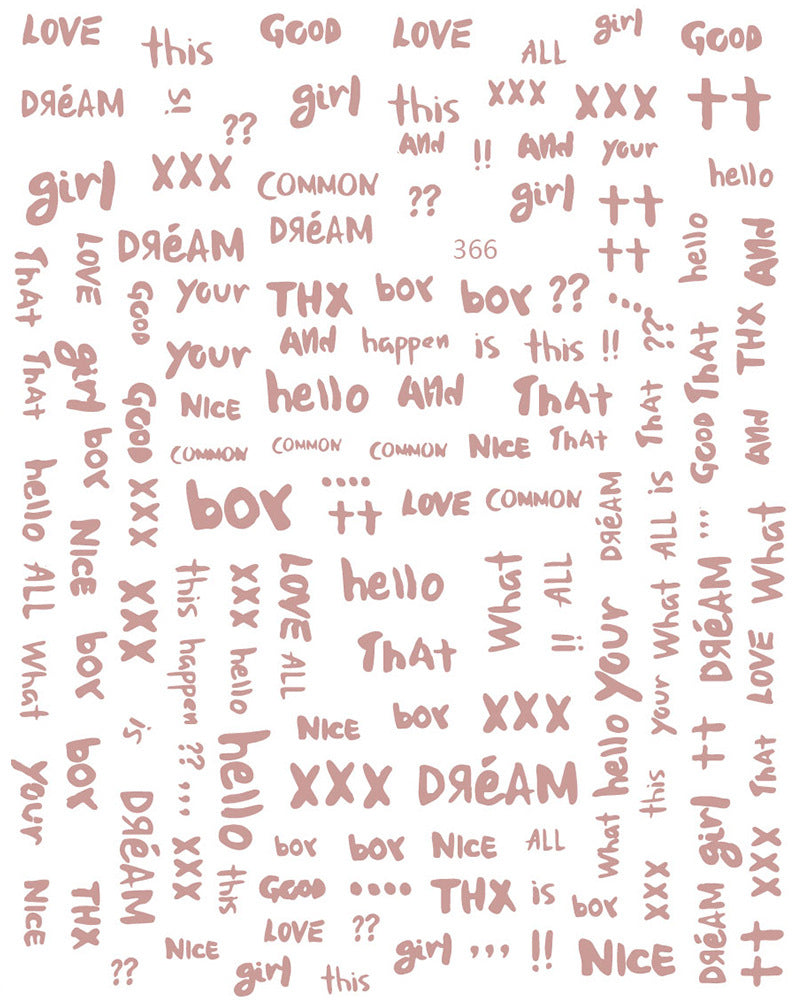 LOVE this GOOD LOVE ALL girl GOOD
DЯéAM is ?? girl this XXX XXX ++
And !! And your
girl XXX COMMON ?? girl ++ hello
DЯéAM DЯéAM 366 ++
ThAt LOVE GOOD your THX boy boy ?? .... hello And
your And happen is this !! ?? ThAt THX
ThAt girl GOOD NICE hello And ThAt ThAt GOOD And
boy COMMON COMMON COMMON NICE ThAt
hello NICE XXX boy .... ++ LOVE COMMON DЯéAM ALL is ,,, What
ALL XXX this XXX LOVE hello What !! ALL your What DЯéAM
What boy happen hello ALL ThAt hello your LOVE
is ?? NICE boy XXX ++
your boy DЯéAM ,,, hello XXX DЯéAM What this girl ThAt
XXX this boy boy NICE ALL XXX
NICE THX GOOD .... THX is boy XXX DЯéAM ++
NICE LOVE ?? girl ,,, !! NICE
?? girl this